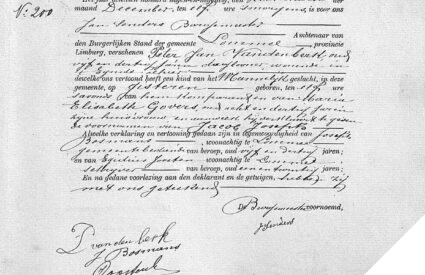 No. 200
maand December, ten elf ure, is voor ons
Jan Senders Burgemeester
Ambtenaar van
den Burgerlijken Stand der gemeente Lommel provincie
Limburg, verschenen Peter Jan Vandenberk, oud
vijf en dertig jaren, daglooner, wonende
dewelke ons vertoond heeft een kind van het Mannelijk geslacht, in deze
gemeente, op Gisteren geboren, ten elf ure
savonds van hem comparant en van Maria
Elisabeth Govers, oud acht en dertig jaren
zijne huisvrouw en aan welk hij verklaart te geven
de voornamen van Jacob Joseph
Alwelke verklaring en vertooning gedaan zijn in tegenwoordigheid van Joseph
Bosmans, woonachtig te Lommel
van beroep, oud vijf en dertig jaren;
en van woonachtig te Lommel
van beroep, oud een en twintig jaren;
En na gedane voorlezing aan den deklarant en de getuigen, hebben zij
met ons geteekend
De Burgemeester voornoemd,
J Senders
P vanden berk
J Bosmans